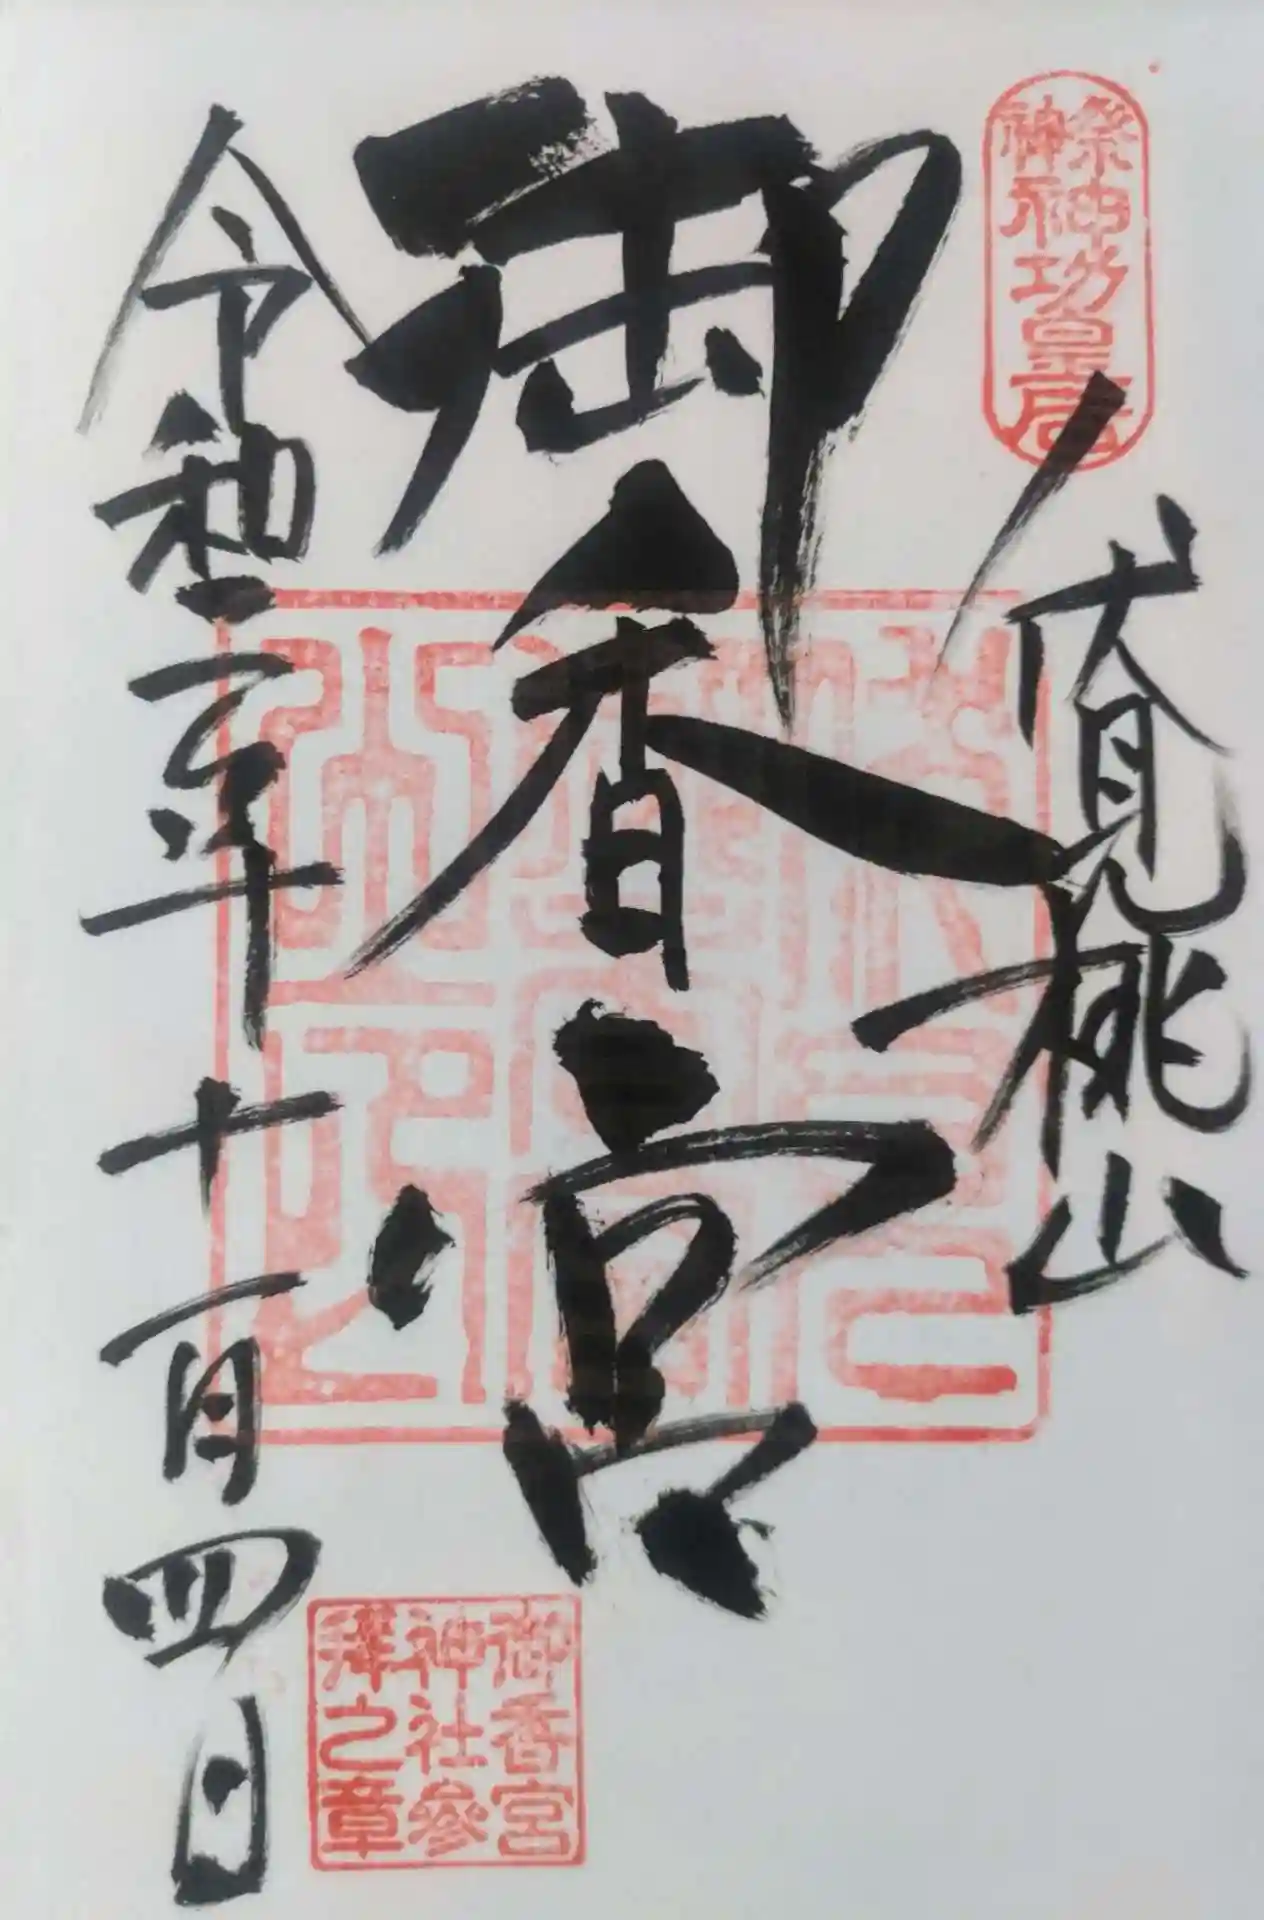 祭神
神功皇后
伏見桃山
御香宮
令和二年十一月四日
御香宮
神社參
拜之章